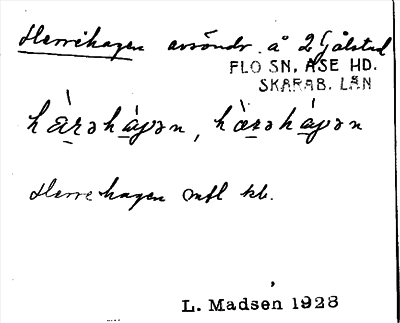 Herrehagen avsöndr. å 2 Gålstad
FLO SN, ÅSE HD.
SKARAB. LÄN
hàrəhágən, hàrəhágən
Herrehagen
L. Madsen 1928